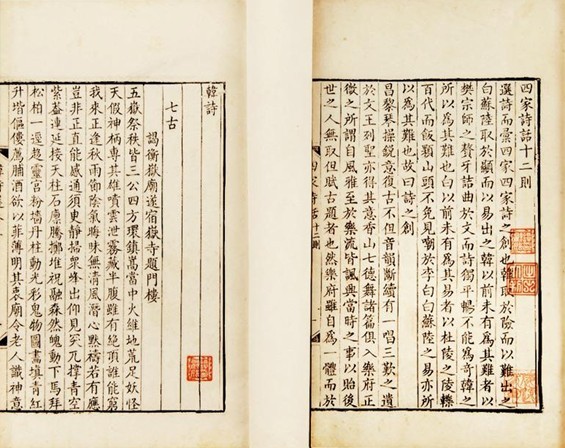 四家詩話十二則
選詩而彙四家四家詩之創也韓取於險而以難出之
白蘇陸取於顯而以易出之韓以前未有為其難者以
樊宗師之聱牙詰曲於文而詩獨平暢不能為奇韓之
所以為其難也白以前未有為其易者以杜陵之陵轢
百代而飯顆山頭不免見嘲於李白白蘇陸之易亦所
以為其難也故曰詩之創
昌黎琴操銳意復古不但音韻斷續有一唱三歎之遺
於文王列聖亦得其意香山七德舞諸篇俱入樂府正
嶽之所謂自風雅至於樂流皆諷興當時之事以貽後
世之人無取但賦古題者也然樂府雖自為一體而於
四家詩話 十二則
韓詩
七古
謁衡嶽廟遂宿嶽寺題門樓
五嶽祭秩皆三公四方環鎮嵩當中火維地荒足妖怪
天假神柄專其雄噴雲泄霧藏半腹雖有絕頂誰能窮
我來正逢秋雨節陰氣晦昧無清風潛心默禱若有應
豈非正直能感通須臾靜掃衆峰出仰見突兀撐青空
紫蓋連延接天柱石廩騰擲堆祝融森然魄動下馬拜
松柏一逕趨靈宮粉墻丹柱動光彩鬼物圖畫填青紅
升堦傴僂薦脯酒欲以菲薄明其衷廟令老人識神意